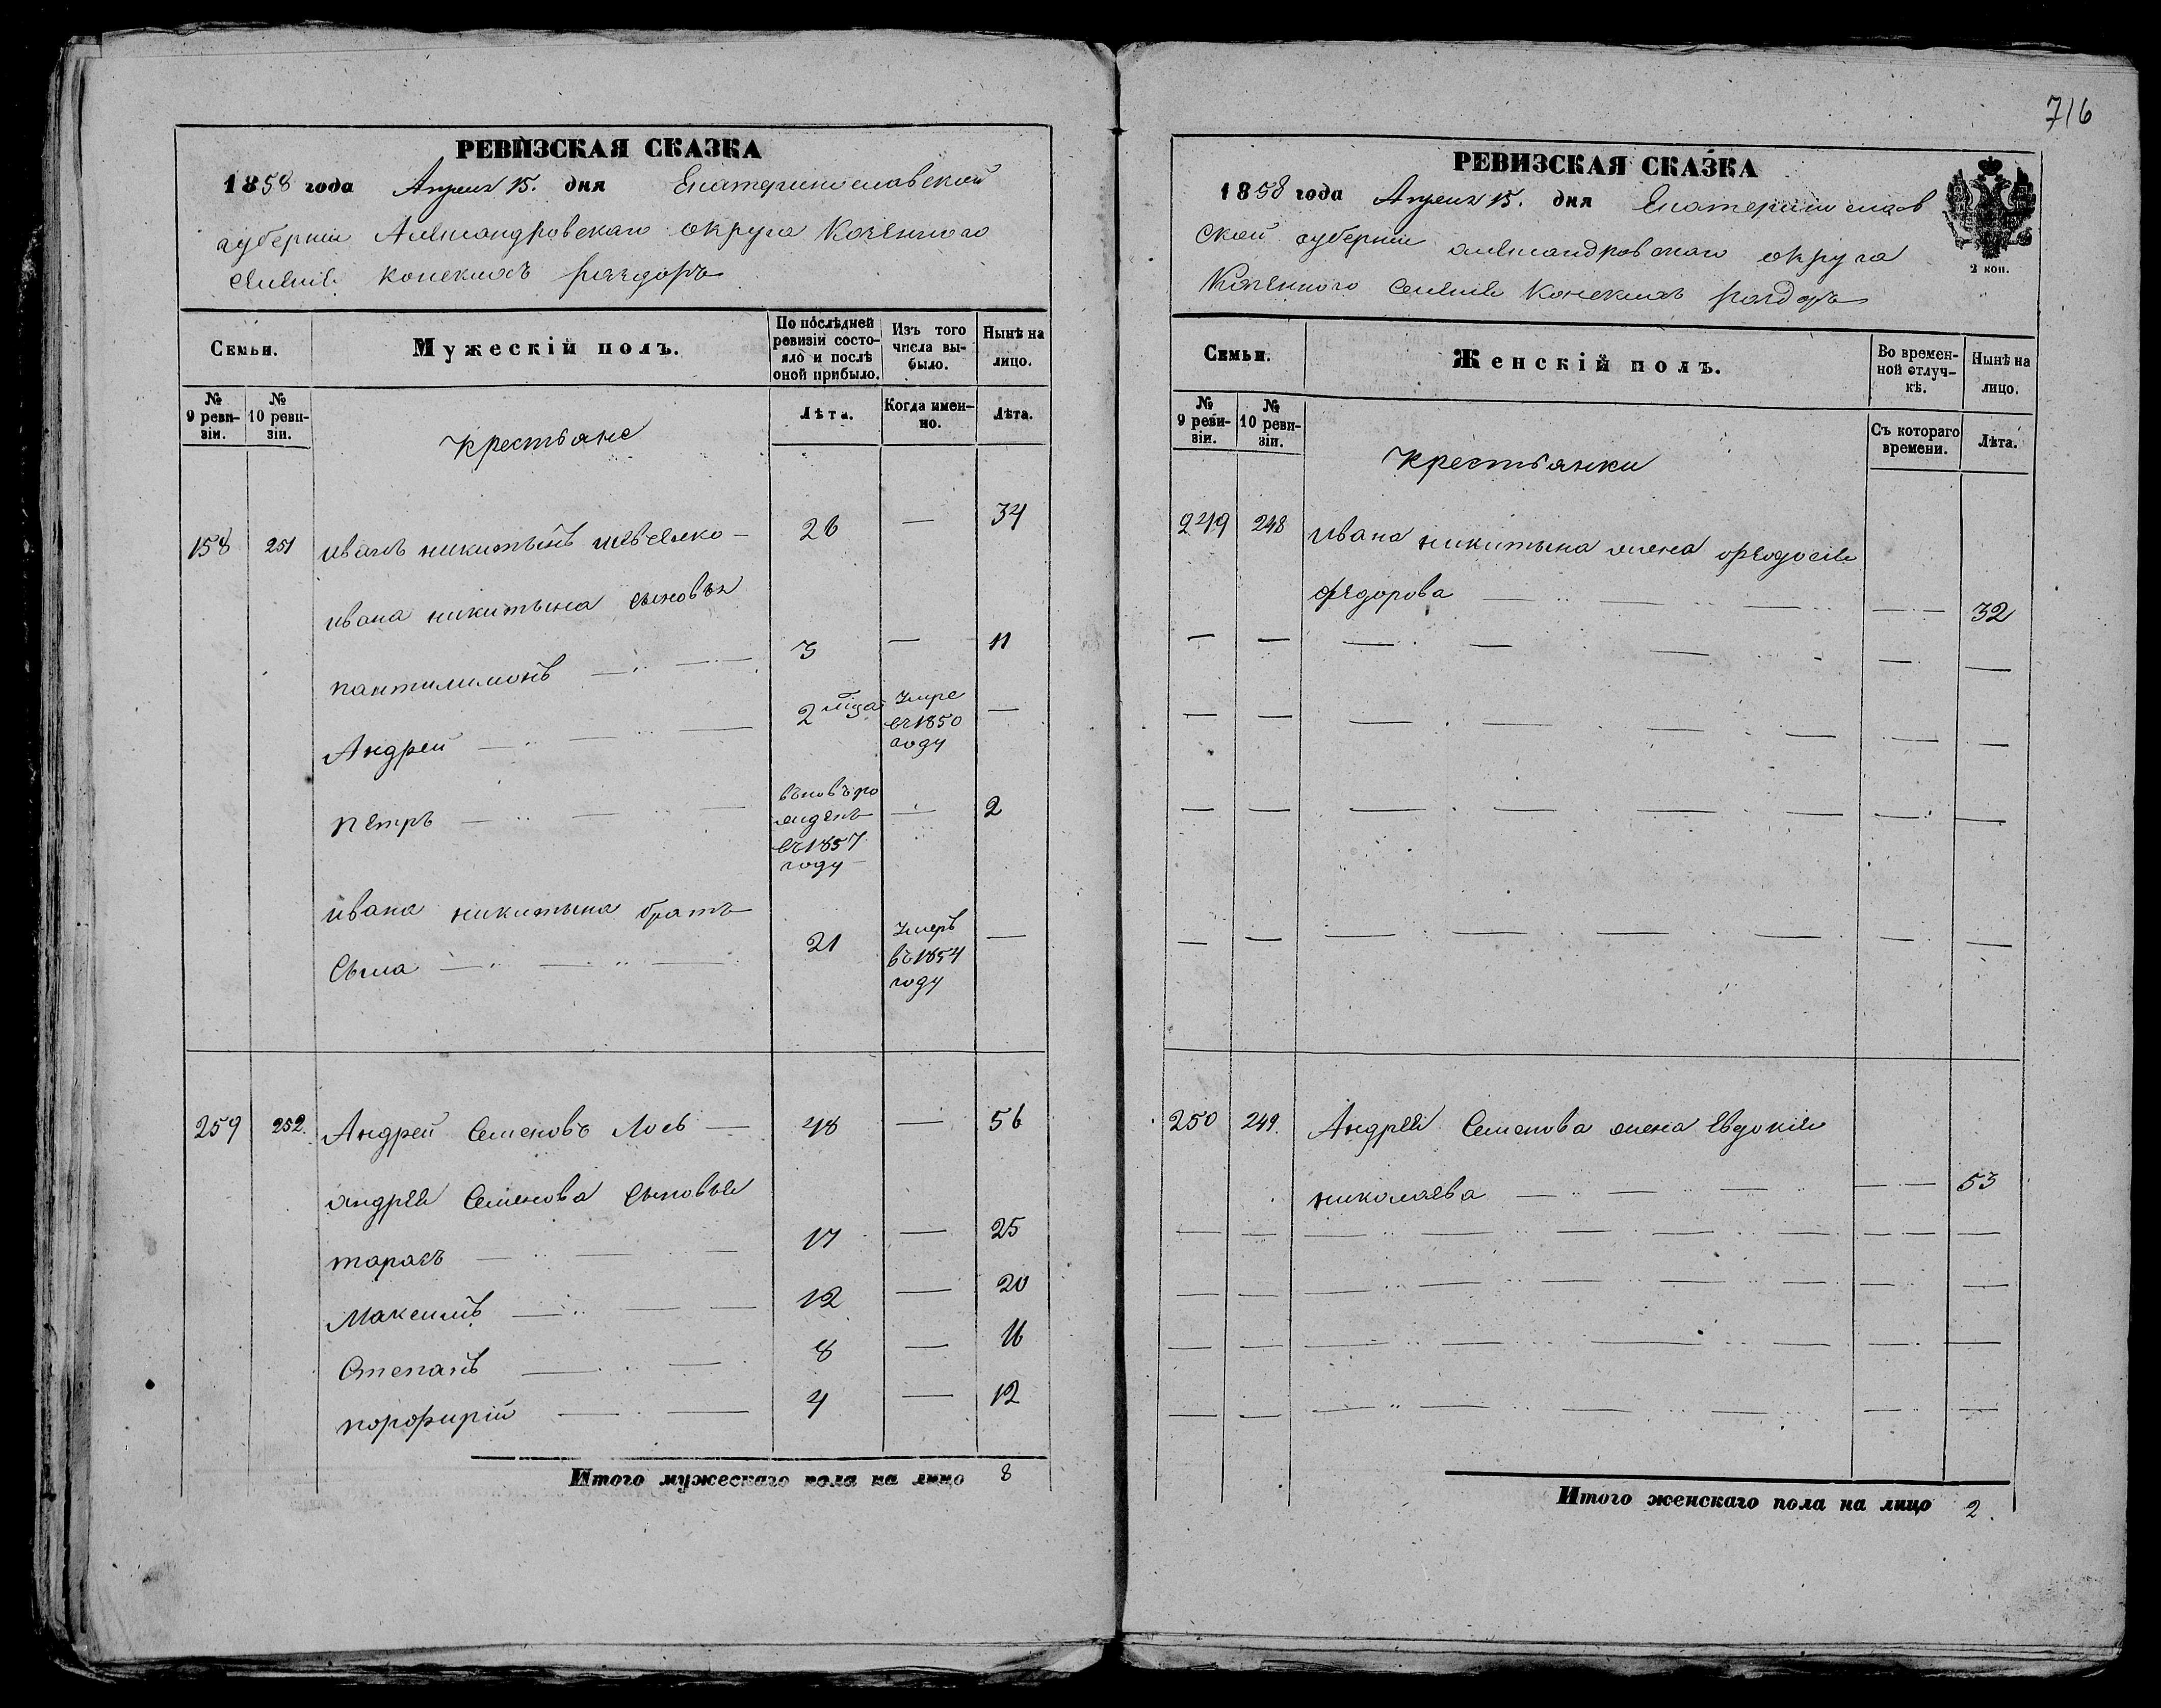 РЕВИЗСКАЯ СКАЗКА
1858 года Апреля 15. дня Екатеринославской
губерніи Александровскаго округа Козенного
селенія Конскихъ раздоръ
Семьи.
Мужескій полъ.
По послѣдней ревизіи состояло и послѣ оной прибыло.
Изъ того числа выбыло.
Нынѣ на лицо.
№ 9 ревизіи.
№ 10 ревизіи.
Лѣта.
Когда именно.
Лѣта.
Крестьяне
158 251 иванъ никитынъ шевченко — 26 — 34
ивана никитына сыновья
пантилимонъ — 3 — 11
Андрей — 2 міца Умре въ 1850 году —
петръ — вновь рожденъ въ 1857 году — 2
ивана никитына братъ
Сыла — 21 Умеръ въ 1854 году —
259 252. Андрей Семеновъ Лось — 48 — 56
андрея Семенова сыновья
тарасъ — 17 — 25
Максимъ — 12 — 20
Степанъ — 8 — 16
порфирій — 4 — 12
Итого мужескаго пола на лицо 8
716
РЕВИЗСКАЯ СКАЗКА
1858 года Апреля 15. дня Екатеринослав
ской губерніи александровскаго округа
Козенного селенія Конскихъ раздоръ
2 коп.
Семьи.
Женскій полъ.
Во временной отлучкѣ.
Нынѣ на лицо.
№ 9 ревизіи.
№ 10 ревизіи.
Съ котораго времени.
Лѣта.
Крестьянки
249 248 ивана никитына жена феодосія
федорова — 32
250 249. Андрея Семенова жена Евдокія
николаева — 53
Итого женскаго пола на лицо 2.